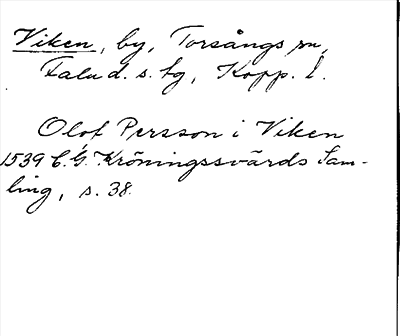 Viken, by, Torsångs sn,
Falu d. s. tg, Kopp. l.
Olof Persson i Viken
1539 C. G. Kröningssvärds Sam-
ling, s. 38.